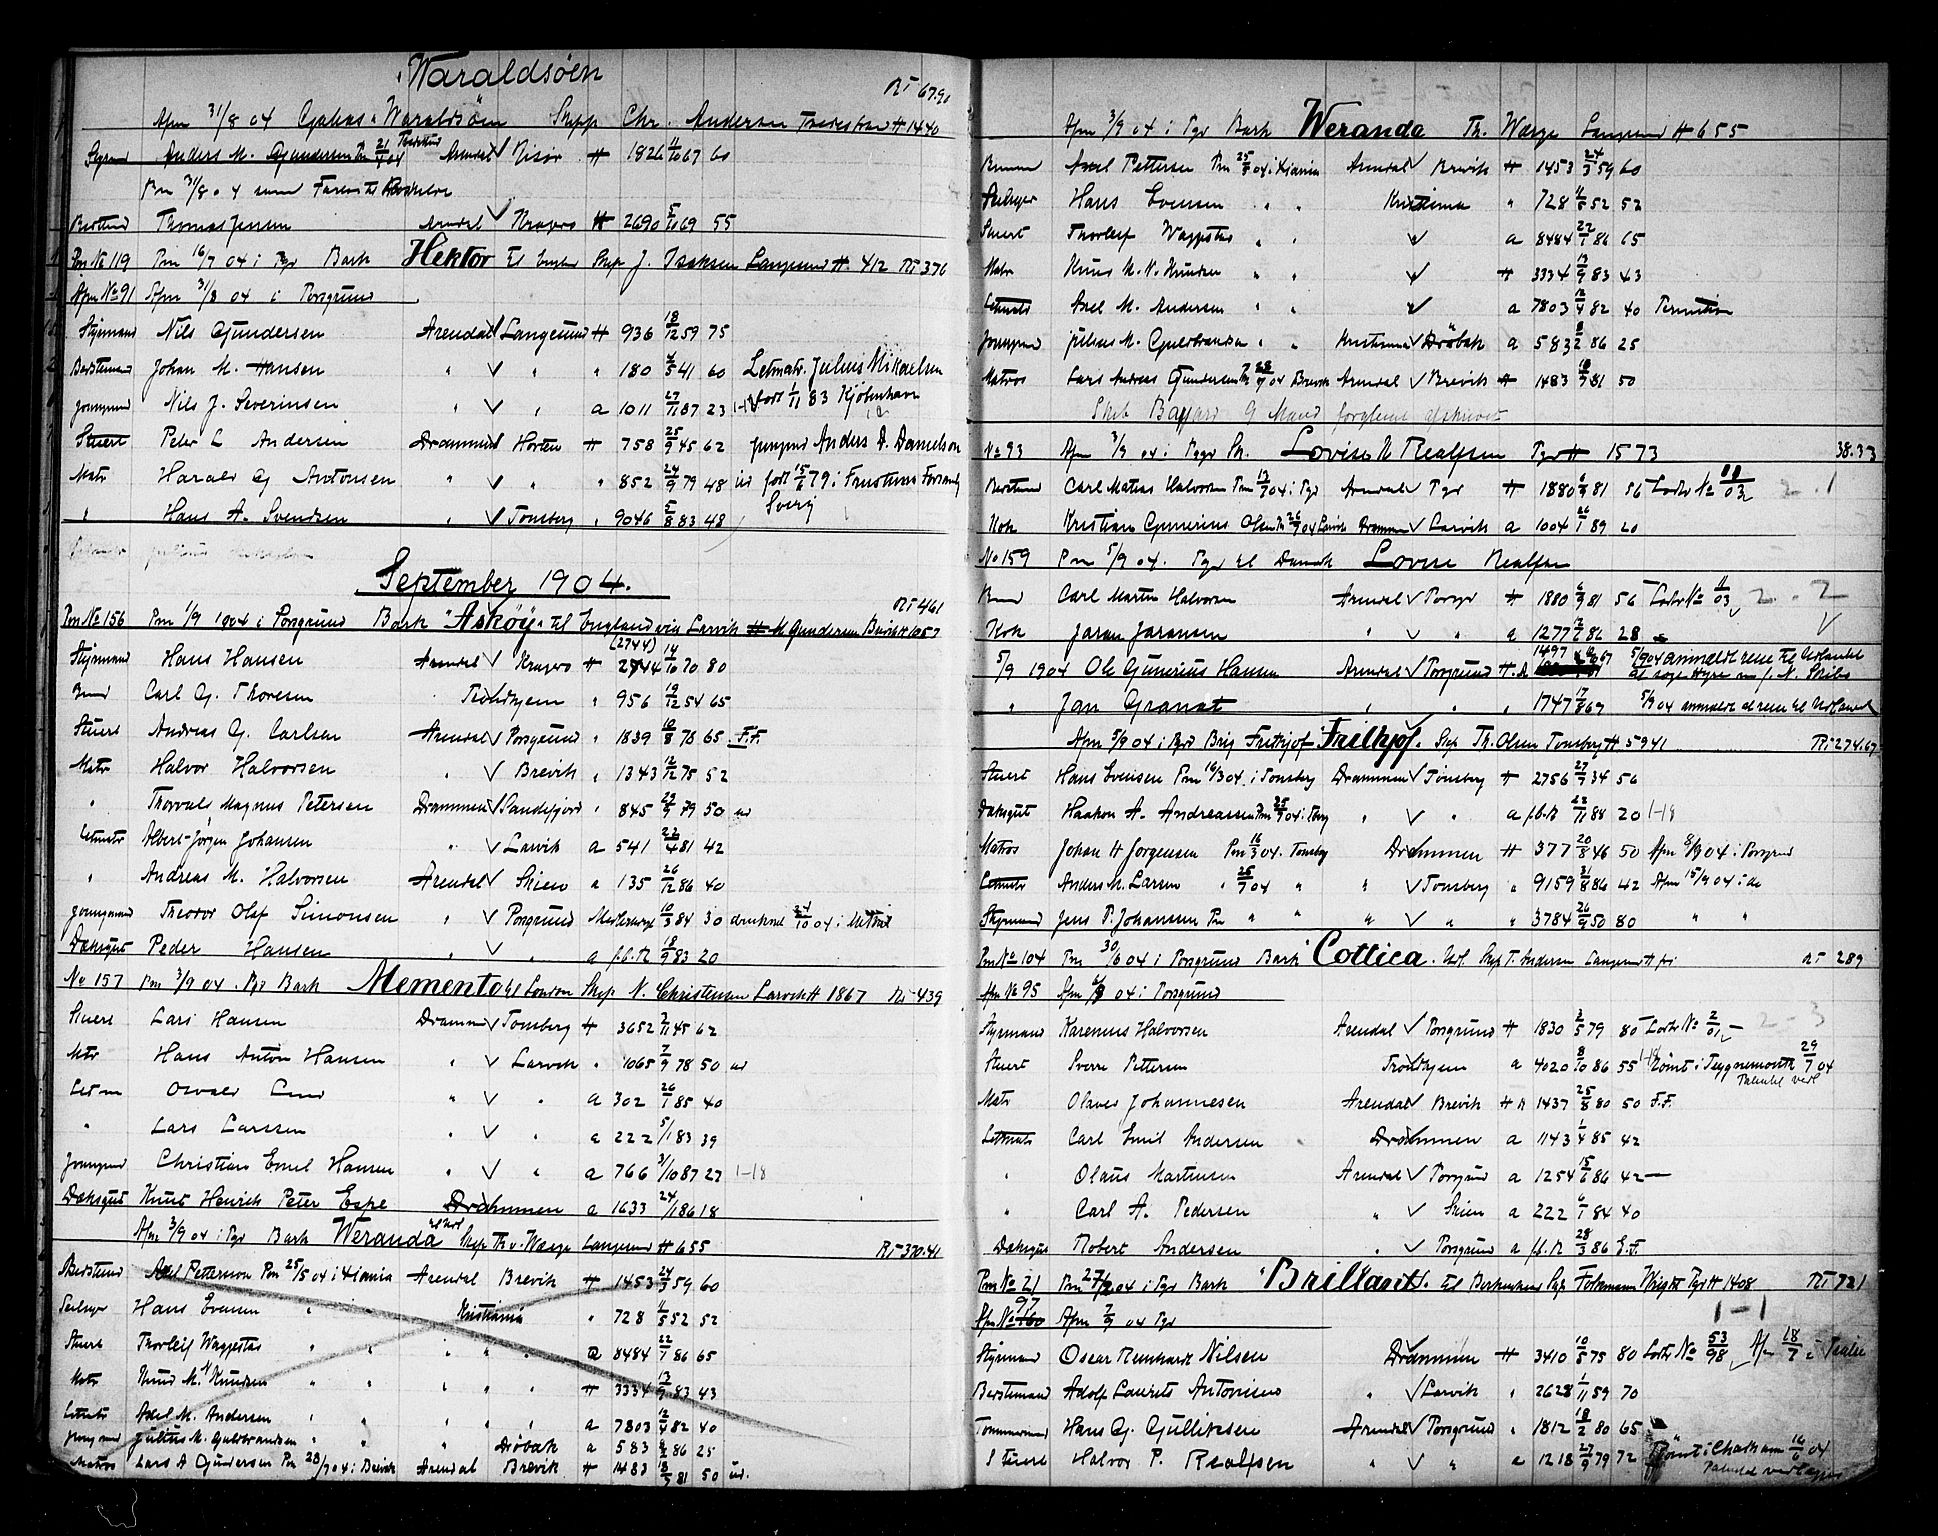 Waraldsöen
RT 67.90
Afm 31/8 04 Galeas "Waraldsöen Skpp Chr. Andersen H 1440
Styrmd Anders M. Gundersen Pm 21/4 04 Arendal Risör H 1826 4/10 67 60
Pm 31/8 04 samme Farens til
Bestmd Thomas Jensen Arendal Kragerø H 2690 5/11 69 55
Pm No 119 Pm 16/7 04 i Pgr Bark Hektor til Skp J. Isaksen Langesund H. 412 RT 376
Afm No 91 Afm 31/8 04 i Porsgrund
Styrmand Nils Gundersen Arendal Langesund H 936 18/12 59 75
Bestmand Johan M. Hansen " " " 180 4/5 41 60 Letmatr. Julius Mikaelsen
Jonugmd Nils J. Severinsen " " a 1011 27/11 87 23 1-18 født 1/11 83 Kjöbenhavn
Stuert Peter L Andersen Drammen Horten H 758 25/9 45 62 jungmd Anders D. Danielson
Matr Harald Cg Antonsen " " " 852 24/9 79 48 ud født 15/6 79 i
" Hans A. Svendsen " Tonsberg " 9046 5/8 83 48 Sverig
September 1904.
RT 461
Pm No 156 Pm 1/9 1904 i Porsgrund Bark "Asköy" til England via Larvik H M Gundersen Brevik H 1057
(2744)
Styrmand Hans Hansen Arendal Kragerø H 2744 14/10 70 80
Bmd Carl Cg. Thoresen Trondhjem " 956 19/12 54 65
Stuert Andreas Cg. Carlsen Arendal Porsgrund " 1839 10/8 78 65 F.F.
Matr Halvor Halvorsen " Brevik " 1343 12/12 75 52
" Thorvald Magnus Petersen Drammen Sandefjord " 845 29/9 79 50 ud
Letmatr Albert Jörgen Johansen " Larvik a 541 22/4 81 42
" Andreas M. Halvorsen Arendal Skien a 135 26/12 86 40
Jonugmand Theodor Olaf Simonsen " Porsgrund 10/3 84 30 druknet 24/10 04 i
Dæksgut Peder Hansen " " a f.b.R 18/9 83 20
No 157 Pm 3/9 04. Pgr Bark Memento til London Skp N. Christensen Larvik H 1867 RT 439
Stuert Lars Hansen Drammen Tonsberg H 3652 2/11 45 62
Mtr Hans Anton Hansen " Larvik " 1065 7/9 78 50 ud
Letm Osvald Lund " " a 302 26/1 85 40
" Lars Larssen " " a 222 5/1 83 39
Jonugmd Christian Emil Hansen " " a 766 3/10 87 27 1-18
Dæksgut Knut Henrik Peter Espe Drammen a 1633 24/1 86 18
Afm 3/9 04 i Pgr Bark Weranda Skp Th v. Wærge Langesund H 655 RT 370.41
Bestmand Axel Petterson Pm 25/5 04 i Kiania Arendal Brevik H 1453 24/3 59 60
Seilmgr Hans Evensen " " Kristiania " 728 11/5 52 52
Stuert Thorleif Waggestas " " " " " a 8484 22/7 86 65
Matr Knud M. N Knudsen " " " " " H 3334 13/9 83 43
Letmtr Axel M. Andersen " " " " " a 7803 12/4 82 40
Jongmd Julius M. Guldbrandsen " " " Dröbak a 583 8/2 86 25
Matros Lars A Gundersen Pm 28/7 04 i Brevik Arendal Brevik H 1483 18/7 81 50 ud.
Afm 3/9 04 i Pgr Bark Weranda Th. Wærge Langesund H 655
Bmmm Axel Pettersen Pm 25/5 04 i Kiania Arendal Brevik H 1453 24/3 59 60
Seilmgr Hans Evensen " " Kristiania " 728 11/5 52 52
Stuert Thorleif Waggestas " " " a 8484 22/7 86 65
Matr Knud M. N. Knudsen " " " H 3334 13/9 83 43
Letmatr Axel M. Andersen " " " a 7803 12/4 82 40
Jonugmd Julius M. Guldbrandsen " " Kristiania Dröbak a 583 8/2 86 25
Matros Lars Andreas Gundersen Pm 28/7 04 Brevik Arendal Brevik H 1483 18/7 81 50
Skib 9 Mand forglemt afskrevet
No 93 Afm 3/9 04 i Pgr Sk. Lovise N Realfsen Pgr H 1573 38.33
Bestmd Carl Mathias Halvorsen Pm 13/7 04 i Pgr Arendal Pgr H 1880 6/9 81 56 Lodtr No 11/03 2.1
Kok Kristian Gunerius Olsen Pm 26/7 04 Larvik Drammen Larvik a 1004 26/1 89 20
No 159 Pm 5/9 04. Pgr til Danmk Lovise Realfsen
Bmd Carl Martin Halvorsen Arendal Porsgr H 1880 6/9 81 56 Lodtr No 11/03 2.2
Kok Jaran Jaransen " " a 1277 12/2 86 28
5/9 1904 Ole Gunerius Hansen Arendal Porsgrund H.a 1497 67 5/9 04 anmeldt reise til Udlandet at søge Hyre m/f. N. Skibe
" Jan Granat " " " 1747 17/8 69 5/9 04 anmeldt at reise til Udlandet
Afm 5/9 04 i Pgr Brig Frithjof Frithjof. Skp Th. Olsen Tonsberg H 5941 RT 274.67
Stuert Hans Evensen Pm 16/3 04. i Tonsberg Drammen Tönsberg H 2756 27/9 34 56
Dæksgut Haakon A. Andreassen Pm 25/7 04 i Tbrg " " a f.b.R 23/11 88 20 1-18
Matros Johan H Jorgensen Pm 16/3 04. Tonsberg Drammen H 377 20/8 46 50 Afm 8/9 04 i Porsgrund
Letmatr Anders M. Larsen " 25/7 04 " " Tonsberg " 9159 31/8 86 42 Afm 15/9 04 i do
Styrmand Jens P. Johansen Pm " " " " " 3784 26/9 50 80 " "
Pm No 104 Pm 30/6 04 i Porsgrund Bark "Cottica. Udl. Skp T. Andersen Langesund H fri RT 289
Afm No 95 Afm 6/9 04 i Porsgrund
Styrmand Karenius Halvorsen Arendal Porsgrund H 1830 2/5 79 80 Lodtr No 2/01 2-3
Stuert Sverre Pettersen Trondhjem a 4020 8/10 86 55 1-18 Römt i Teygnemouth 29/7 04
Matr Olaves Johannesen Arendal Brevik H R 1437 25/8 80 50 F.F.
Letmatr Carl Emil Andersen Drammen a 1143 1/4 85 42
" Olaus Martinsen Arendal Porsgrund a 1254 15/6 86 42
" Carl A. Pedersen " Skien a 222 6/1 84 40
Dæksgut Robert Andersen " Porsgrund a f.b.R 28/3 86 E.F.
Pm No 21 Pm 27/2 04 i Pgr Bark "Brillant. til Skp. Folkmann Wright Pgr H 1408 RT 721
97
Afm No 160 Afm 7/9 04 Pgr 1-1
Styrmand Oscar Reinhardt Nilsen Drammen H 3410 10/5 75 80 Lodtr No 53/98 Afm 18/7
Bestemand Adolf Laurits Antonisen " Larvik " 2628 1/11 59 70
Tommermand Hans Cg. Gulliksen Arendal Porsgrund " 1812 18/2 80 65
Stuert Halvor P. Realfsen " " a 1218 27/9 79 72 Römt i Chatham 16/6 04